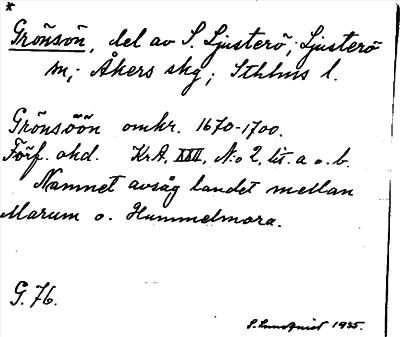 *
Grönsön, del av S. Ljusterö; Ljusterö
sn; Åkers skg; Sthlms l.
Grönsöön omkr. 1670-1700.
Förf. okd. KrA. XXII, N:o 2, lit. a o. b.
Namnet avsåg landet mellan
Marum o. Hummelmora.
G. 76.
S. Lundquist 1935.